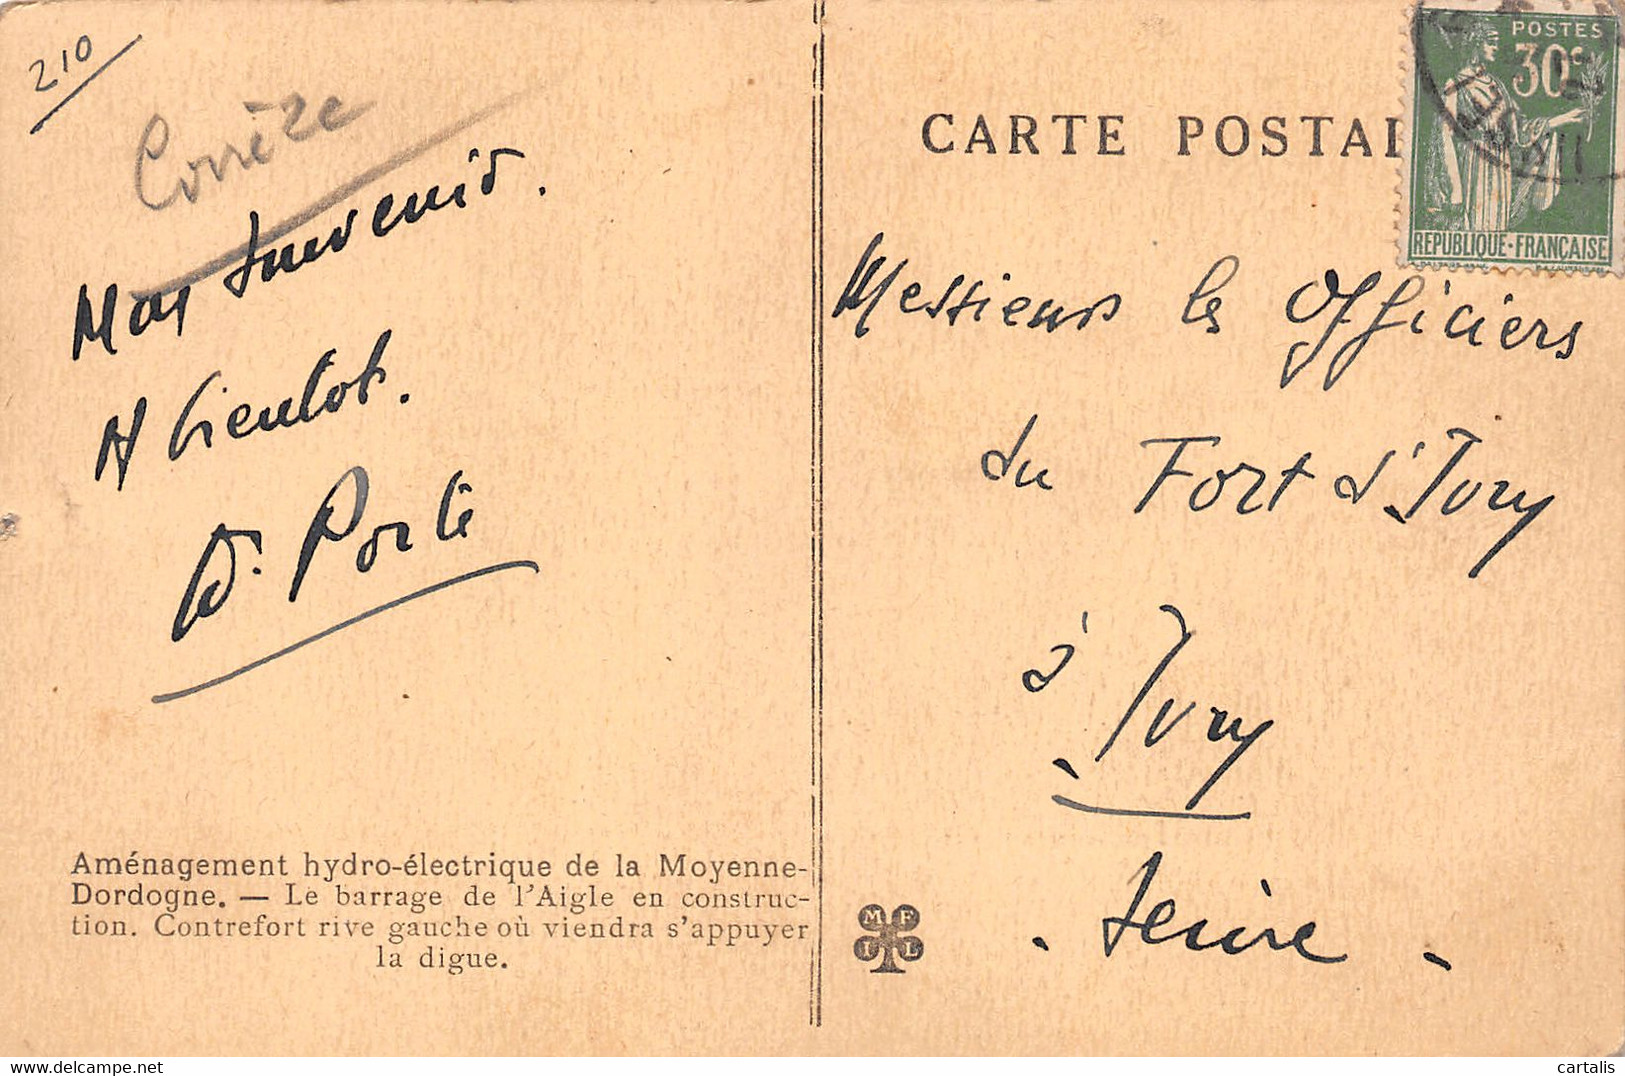 210
Corrèze
Mon souvenir.
A bientot.
Dr. Porte
Aménagement hydro-électrique de la Moyenne-
Dordogne. — Le barrage de l'Aigle en construc-
tion. Contrefort rive gauche où viendra s'appuyer
la digue.
CARTE POSTAL
POSTES
30c
REPUBLIQUE·FRANÇAISE
Messieurs les Officiers
du Fort d'Ivry
à Ivry
- Seine -
M F
I L
delcampe.net
cartalis